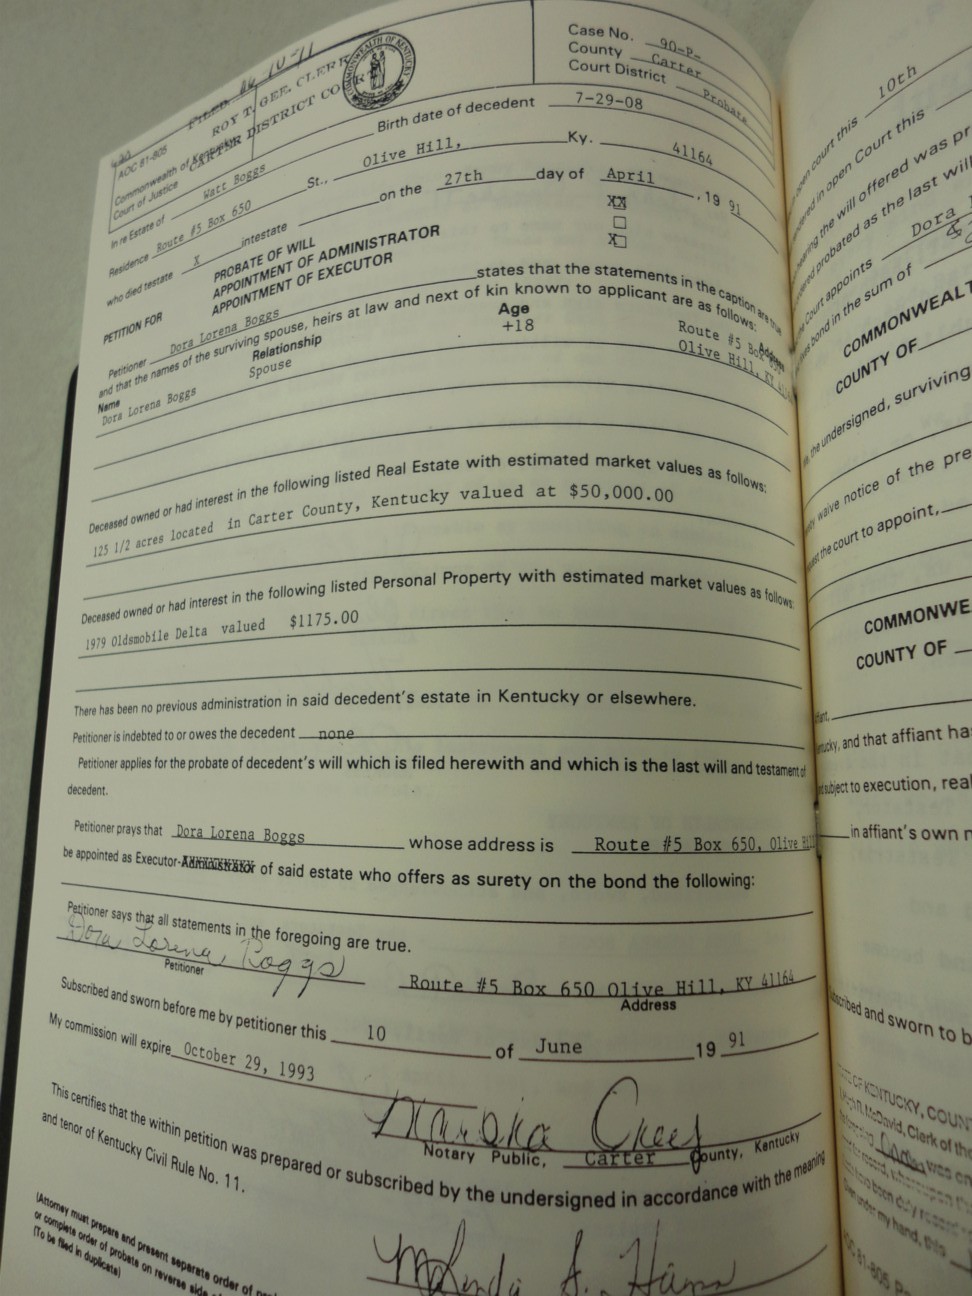 FILED 6-10-91
ROY T. GEE, CLERK
CARTER DISTRICT COURT
COMMONWEALTH OF KENTUCKY
Case No. 90-P-
County Carter
Court District Probate
AOC 81-805
Commonwealth of Kentucky
Court of Justice
Birth date of decedent 7-29-08
In re Estate of Watt Boggs
Residence Route #5 Box 650 St., Olive Hill, Ky. 41164
who died testate X intestate on the 27th day of April , 19 91
PETITION FOR
PROBATE OF WILL XX
APPOINTMENT OF ADMINISTRATOR
APPOINTMENT OF EXECUTOR X
Petitioner Dora Lorena Boggs states that the statements in the caption are true
and that the names of the surviving spouse, heirs at law and next of kin known to applicant are as follows:
Name Relationship Age Address
Dora Lorena Boggs Spouse +18 Route #5 Box
Olive Hill, KY
Deceased owned or had interest in the following listed Real Estate with estimated market values as follows:
125 1/2 acres located in Carter County, Kentucky valued at $50,000.00
Deceased owned or had interest in the following listed Personal Property with estimated market values as follows:
1979 Oldsmobile Delta valued $1175.00
There has been no previous administration in said decedent's estate in Kentucky or elsewhere.
Petitioner is indebted to or owes the decedent none
Petitioner applies for the probate of decedent's will which is filed herewith and which is the last will and testament of
decedent.
Petitioner prays that Dora Lorena Boggs whose address is Route #5 Box 650, Olive Hill
be appointed as Executor-Administrator of said estate who offers as surety on the bond the following:
Petitioner says that all statements in the foregoing are true.
Dora Lorena Boggs
Petitioner
Route #5 Box 650 Olive Hill, KY 41164
Address
Subscribed and sworn before me by petitioner this 10 of June 19 91
My commission will expire October 29, 1993
Notary Public, Carter County, Kentucky
This certifies that the within petition was prepared or subscribed by the undersigned in accordance with the meaning
and tenor of Kentucky Civil Rule No. 11.
(Attorney must prepare and present separate order of
or complete order of probate on reverse side
(To be filed in duplicate)
open court this 10th
in open Court this
the will offered was
probated as the last will
Court appoints Dora
bond in the sum of
COMMONWEALT
COUNTY OF
the undersigned, surviving
waive notice of the pre
the court to appoint,
COMMONWE
COUNTY OF
and that affiant ha
subject to execution, real
in affiant's own n
and sworn to b
OF KENTUCKY, COUN
McDavid, Clerk of the
under my hand, this